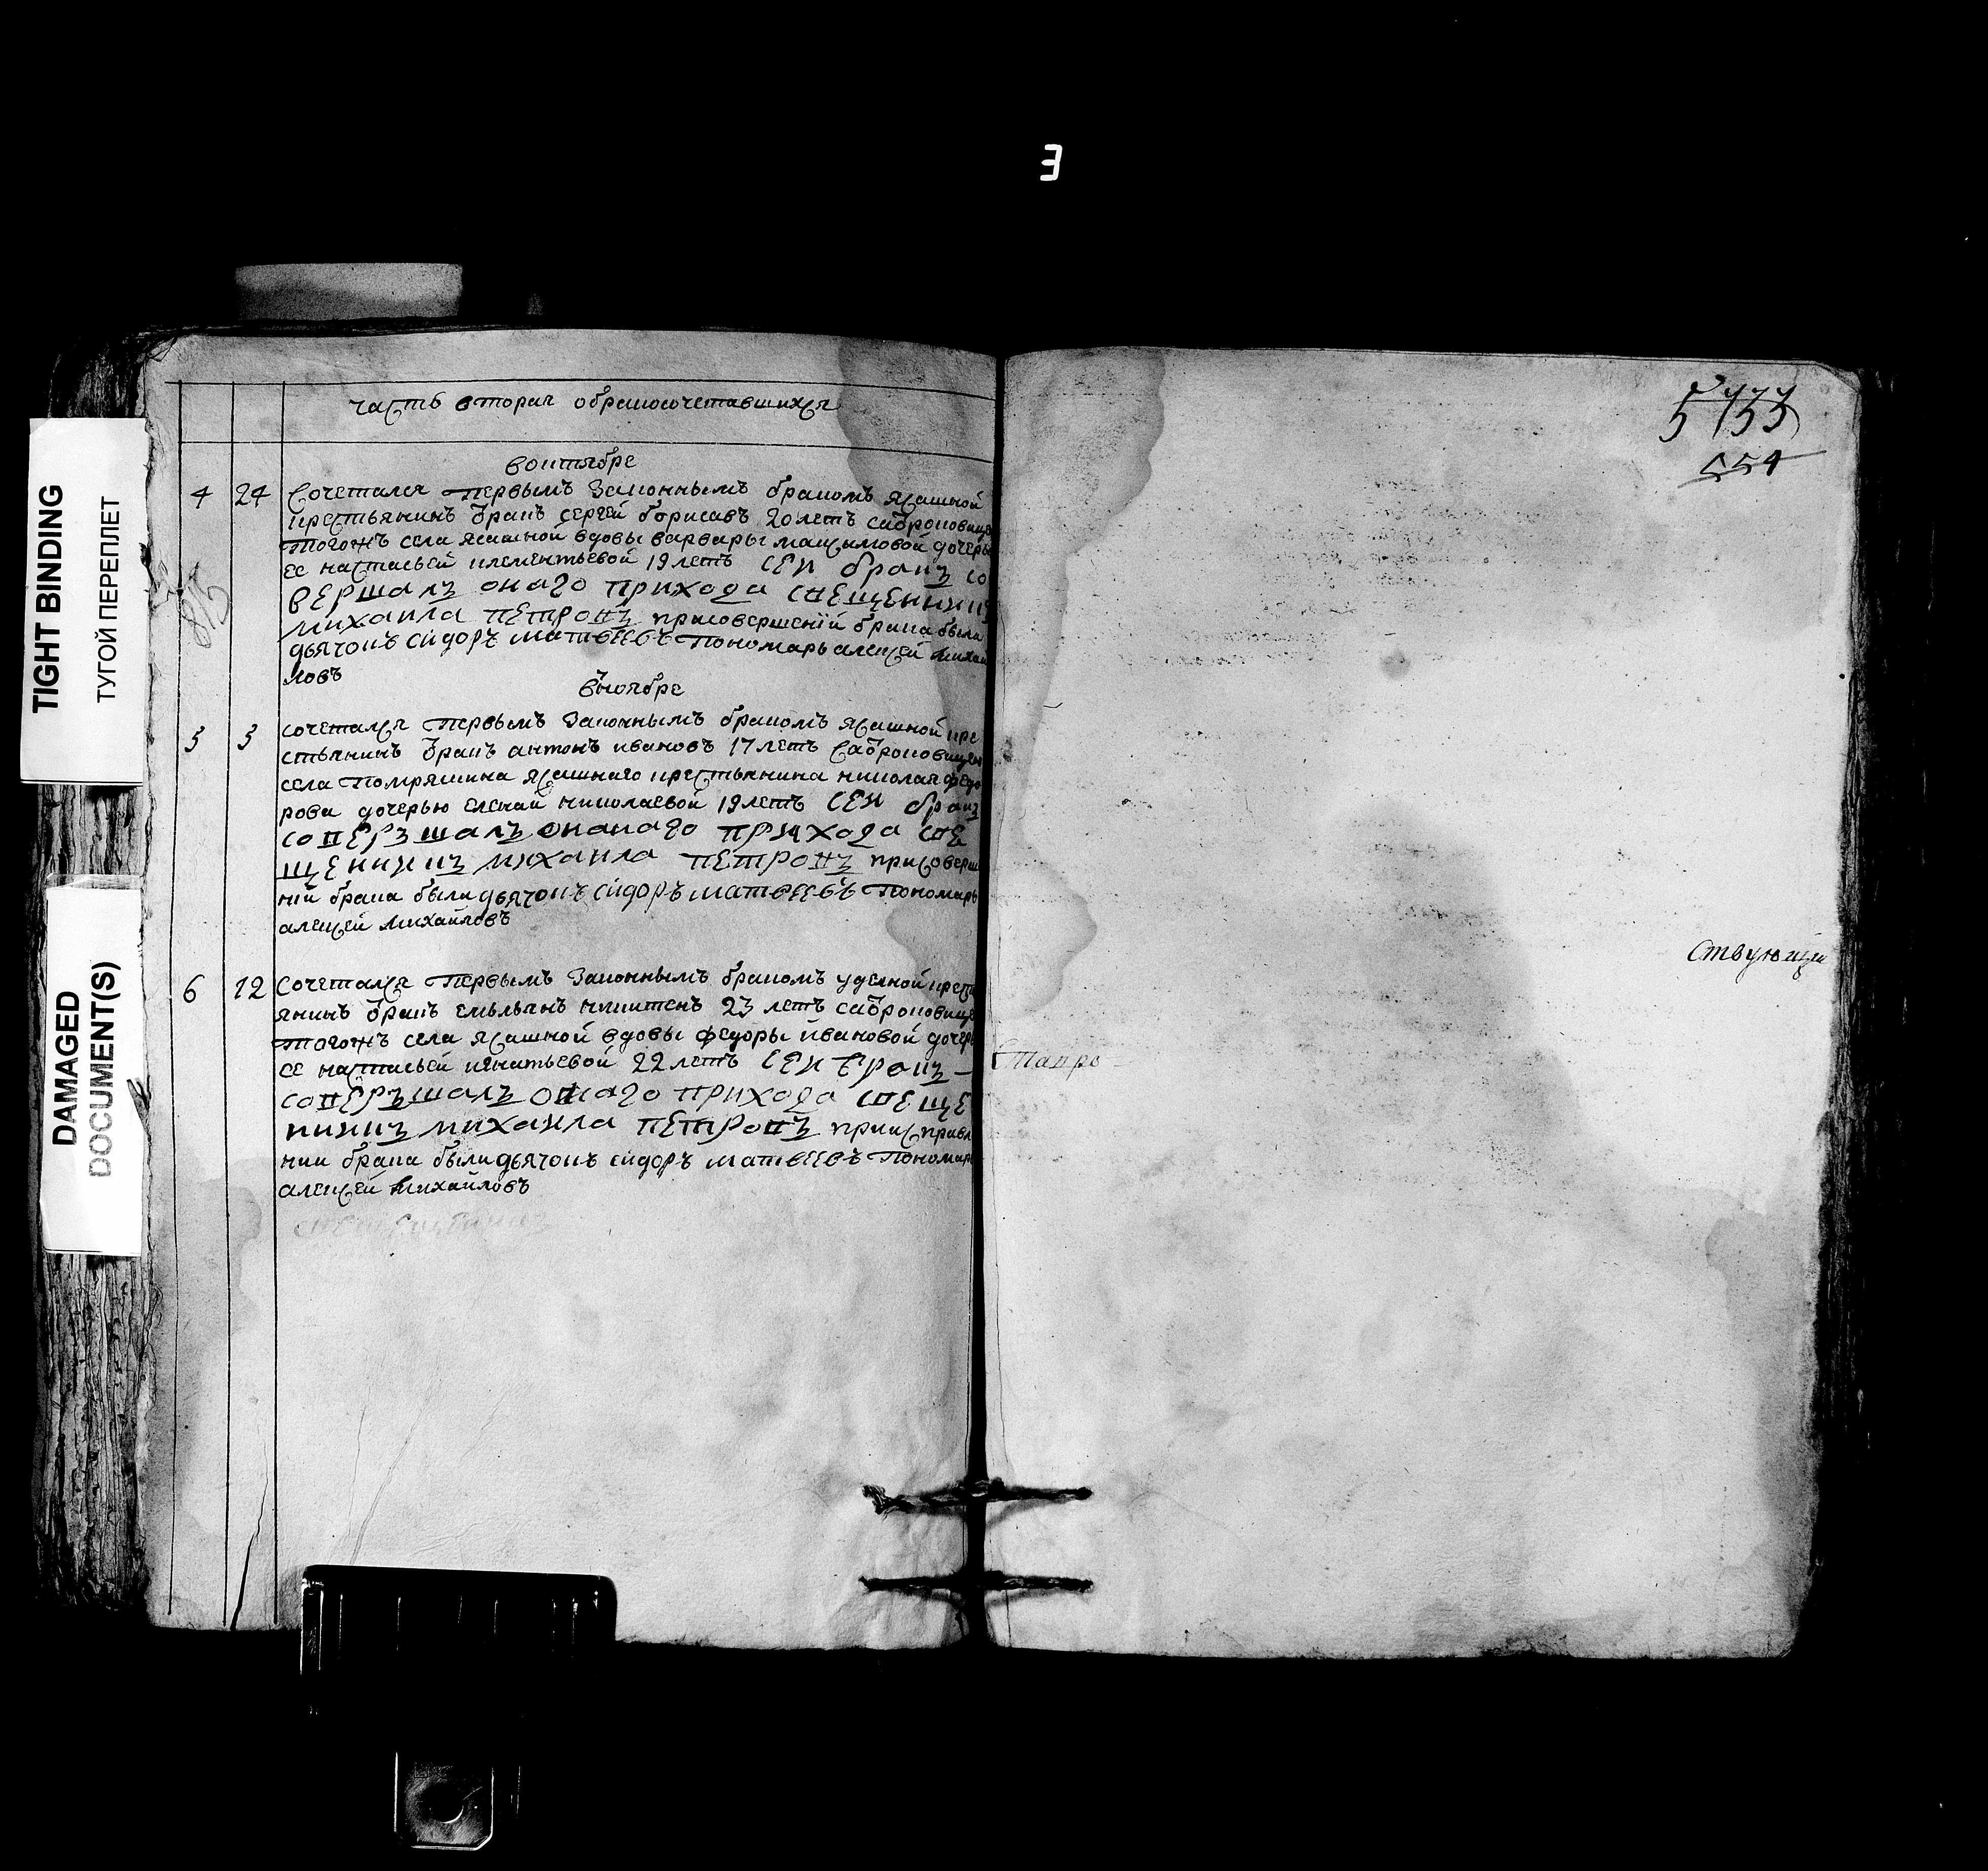 Э
TIGHT BINDING
ТУГОЙ ПЕРЕПЛЕТ
DAMAGED
DOCUMENT(S)
часть вторая обракосочетавшихся
воктябре
4 24 Сочетался первымъ законнымъ бракомъ ясашной
крестьянинъ бракъ сергей борисавъ 20 летъ сабраковище
тогожъ села ясашной вдовы варвары максимовой дочерью
ее настасьей клементьевой 19 летъ сей бракъ со
вершалъ онаго прихода свещенникъ
михаила петровъ присовершениӥ брака были
дьячокъ сидоръ матвеевъ пономарь алексей михаи
ловъ
вноябре
5 3 сочетался первымъ законнымъ бракомъ ясашной кре
стьянинъ бракъ антонъ ивановъ 17 летъ сабраковище
села помряшина ясашнаго крестьянина николая федо
рова дочерью еленай николаевой 19 летъ сей бракъ
совершалъ онанаго прихода све
щенникъ михаила петровъ присоверше
нӥ брака были дьячокъ сидоръ матвеевъ пономарь
алексей михайловъ
6 12 Сочетался первымъ законнымъ бракомъ уделной крсть
янинъ бракъ емельянъ никитенъ 23 летъ сабраковище
тогожъ села ясашной вдовы федоры ивановой дочерью
ее настасьей игнатьевой 22 летъ сей бракъ
совершалъ онаго прихода свеще
никъ михаила петровъ приисправле
нии брака были дьячокъ сидоръ матвеевъ пономарь
алексей михайловъ
554
ствующи